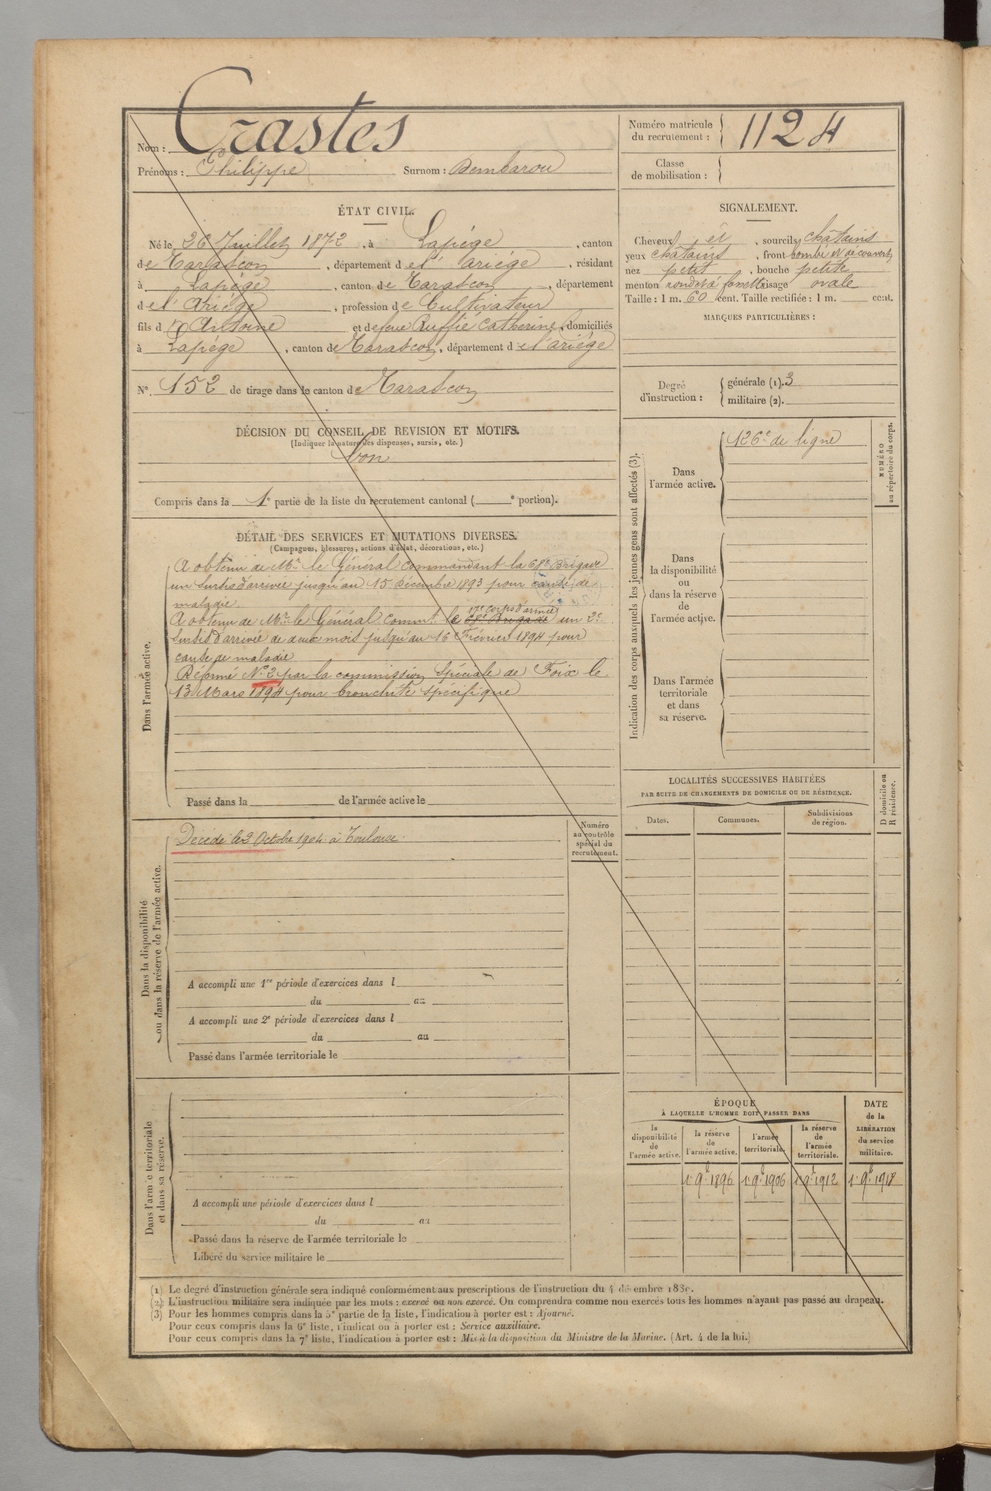 Nom : Crastes
Prénoms : Philippe Surnom : Bembarou
Numéro matricule du recrutement : 1124
Classe de mobilisation :
ÉTAT CIVIL.
Né le 26 Juillet 1872, à Lapège, canton
de Tarascon, département de l'ariége, résidant
à Lapége, canton de Tarascon, département
de l'Ariége, profession de Cultivateur
fils d' Antoine et de feue Ruffié Catherine, domiciliés
à Lapége, canton de Tarascon, département de l'ariége
N° 152 de tirage dans le canton de Tarascon
SIGNALEMENT.
Cheveux et, sourcils chatains
yeux chatains, front bombé et découvert
nez petit, bouche petite
menton rond et à fossette visage ovale
Taille : 1 m. 60 cent. Taille rectifiée : 1 m. cent.
MARQUES PARTICULIÈRES :
Degré d'instruction : générale (1). 3
militaire (2).
DÉCISION DU CONSEIL DE REVISION ET MOTIFS.
(Indiquer la nature des dispenses, sursis, etc.)
bon
Compris dans la 1e partie de la liste du recrutement cantonal ( e portion).
DÉTAIL DES SERVICES ET MUTATIONS DIVERSES.
(Campagnes, blessures, actions d'éclat, décorations, etc.)
Dans l'armée active.
A obtenu de Mr le Général commandant la 68e Brigade
un sursis d'arrivée jusqu'au 15 décembre 1893 pour cause de
maladie.
17e corps d'armée
A obtenu de Mr le Général Commt le un 2e
Sursis d'arrivée de deux mois jusqu'au 15 Février 1894 pour
cause de maladie
Réformé N° 2 par la commission spéciale de Foix le
13 Mars 1894 pour bronchite spécifique
Passé dans la de l'armée active le
Dans la disponibilité
ou dans la réserve de l'armée active.
Décédé le 2 Octobre 1904 à Toulouse
Numéro
au contrôle
spécial du
recrutement.
A accompli une 1re période d'exercices dans l
du au
A accompli une 2e période d'exercices dans l
du au
Passé dans l'armée territoriale le
Dans l'armée territoriale
et dans sa réserve.
A accompli une période d'exercices dans l
du au
Passé dans la réserve de l'armée territoriale le
Libéré du service militaire le
Indication des corps auxquels les jeunes gens sont affectés (3).
Dans
l'armée active.
126e de ligne
NUMÉRO
au répertoire du corps.
Dans
la disponibilité
ou
dans la réserve
de
l'armée active.
Dans l'armée
territoriale
et dans
sa réserve.
LOCALITÉS SUCCESSIVES HABITÉES
PAR SUITE DE CHANGEMENTS DE DOMICILE OU DE RÉSIDENCE.
D domicile ou
R résidence.
Dates. Communes. Subdivisions
de région.
ÉPOQUE
À LAQUELLE L'HOMME DOIT PASSER DANS
DATE
de la
LIBÉRATION
du service
militaire.
la
disponibilité
de
l'armée active.
la réserve
de
l'armée active.
l'armée
territoriale.
la réserve
de
l'armée
territoriale.
1 9bre 1896 1 9bre 1906 1 9bre 1912 1 9bre 1918
(1) Le degré d'instruction générale sera indiqué conformément aux prescriptions de l'instruction du 4 décembre 1889.
(2) L'instruction militaire sera indiquée par les mots : exercé ou non exercé. On comprendra comme non exercés tous les hommes n'ayant pas passé au drapeau.
(3) Pour les hommes compris dans la 5e partie de la liste, l'indication à porter est : Ajourné.
Pour ceux compris dans la 6e liste, l'indication à porter est : Service auxiliaire.
Pour ceux compris dans la 7e liste, l'indication à porter est : Mis à la disposition du Ministre de la Marine. (Art. 4 de la loi.)